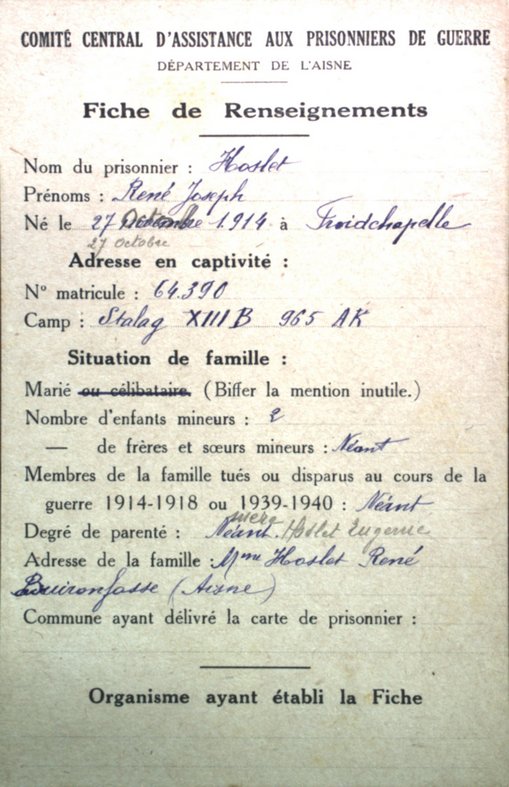 COMITÉ CENTRAL D'ASSISTANCE AUX PRISONNIERS DE GUERRE
DÉPARTEMENT DE L'AISNE
Fiche de Renseignements
Nom du prisonnier : Hoslet
Prénoms : René Joseph
Né le 27 Octobre 1914 à Froidchapelle
27 Octobre
Adresse en captivité :
N° matricule : 64.390
Camp : Stalag XIII B 965 AK
Situation de famille :
Marié ou célibataire. (Biffer la mention inutile.)
Nombre d'enfants mineurs : 2
— de frères et sœurs mineurs : Néant
Membres de la famille tués ou disparus au cours de la
guerre 1914-1918 ou 1939-1940 : Néant
Degré de parenté : Néant. Hoslet Eugenie
Adresse de la famille : Mme Hoslet René
Buironfosse (Aisne)
Commune ayant délivré la carte de prisonnier :
Organisme ayant établi la Fiche